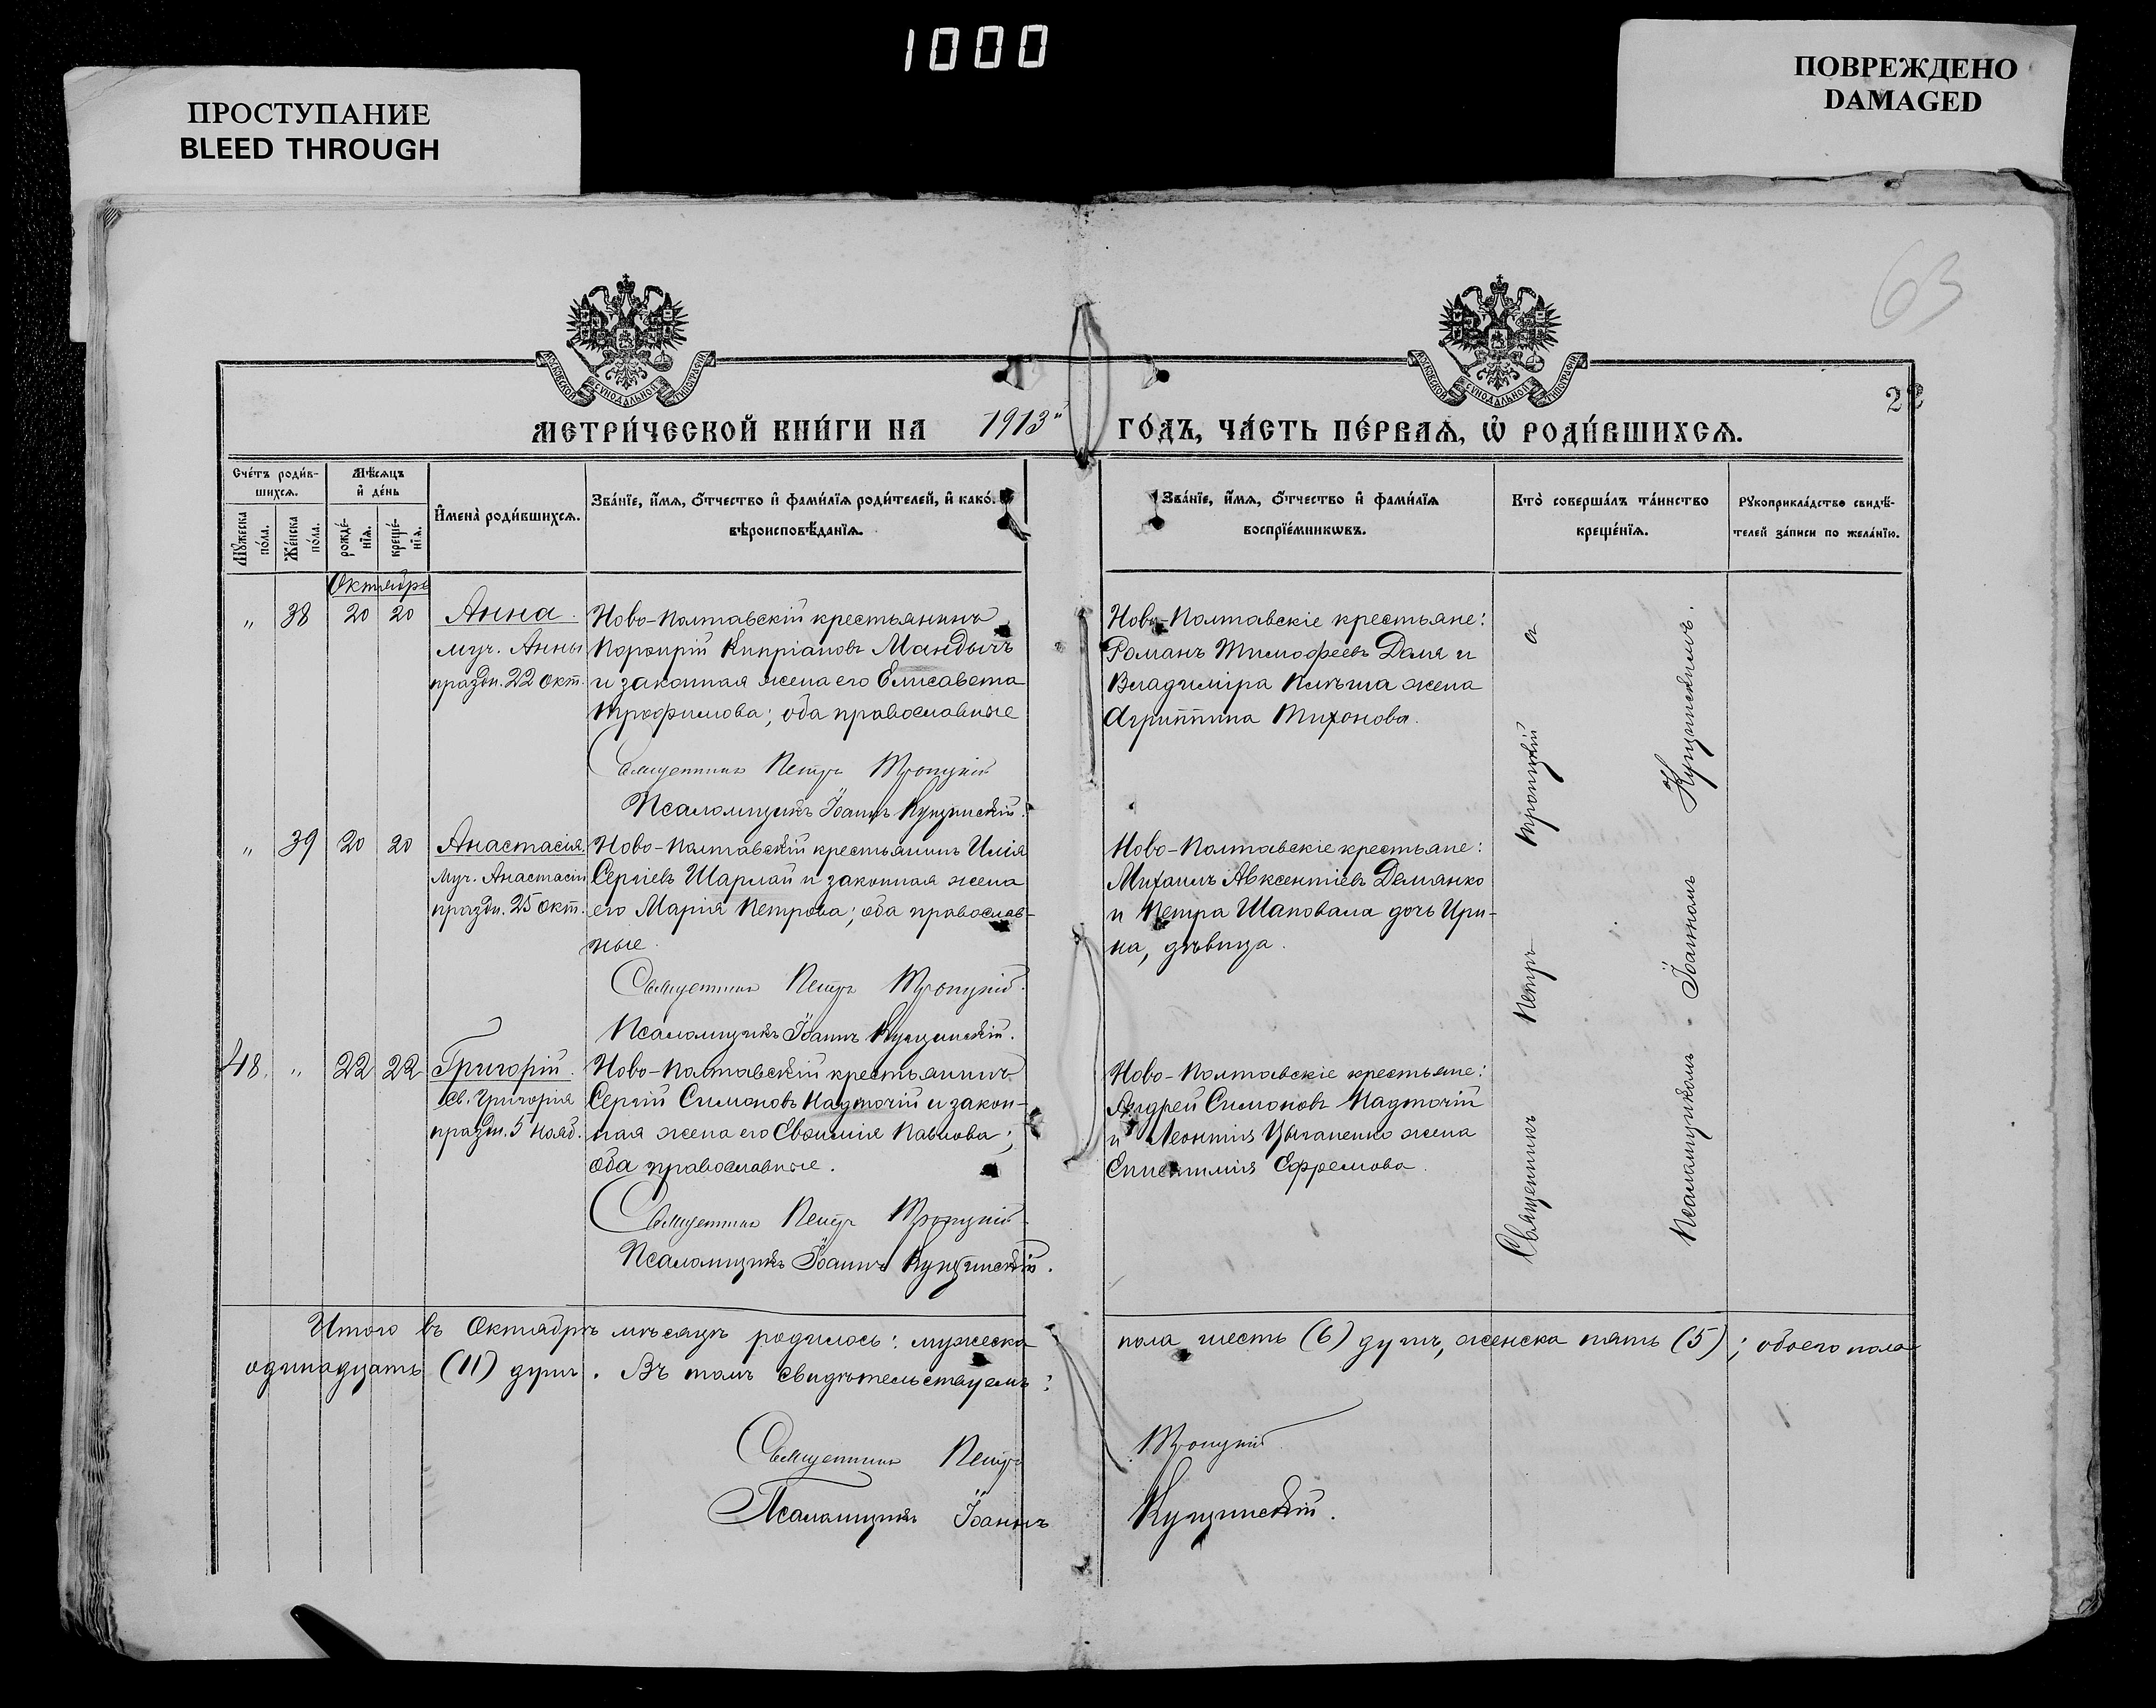 1000
ПРОСТУПАНИЕ
BLEED THROUGH
ПОВРЕЖДЕНО
DAMAGED
63
22
МОСКОВСКОЙ СѴНОДАЛЬНОЙ ТИПОГРАФІИ
МОСКОВСКОЙ СѴНОДАЛЬНОЙ ТИПОГРАФІИ
МЕТРИ́ЧЕСКОЙ КНИ́ГИ НА 1913 ГО́ДЪ, ЧА́СТЬ ПЕ́РВАѦ, Ѡ҆ РОДИ́ВШИХСѦ.
Сче́тъ роди́в-
шихсѧ.
Мѹ́жеска по́ла.
Же́нска по́ла.
Мѣ́сѧцъ
и҆ де́нь
рожде́-
нїѧ.
креще́-
нїѧ.
И҆мена̀ роди́вшихсѧ.
Зва́нїе, и҆́мѧ, ѻ҆́тчество и҆ фами́лїѧ роди́телей, и҆ како́.
вѣроисповѣ́данїѧ.
Зва́нїе, и҆́мѧ, ѻ҆́тчество и҆ фами́лїѧ
воспрїе́мникѡвъ.
Кто̀ соверша́лъ та́инство
креще́нїѧ.
Рѹкоприкла́дство свидѣ́-
телей за́писи по жела́нїю.
Октябрь
„ 38 20 20 Анна.
муч. Анны
праздн. 22 Окт.
Ново-Полтавскій крестьянинъ
Порфирій Кипріановъ Мандычъ
и законная жена его Елисавета
Трофимова; оба православные
Священникъ Петръ Троицкій
Псаломщикъ Іоаннъ Кущинскій.
Ново-Полтавскіе крестьяне:
Романъ Тимофеевъ Даля и
Владиміра жена
Агриппина Тихонова.
„ 39 20 20 Анастасія
муч. Анастасіи
праздн. 25 Окт.
Ново-Полтавскій крестьянинъ Илія
Сергіевъ Шарлай и законная жена
его Марія Петрова; оба православ-
ные.
Священникъ Петръ Троицкій.
Псаломщикъ Іоаннъ Кущинскій.
Ново-Полтавскіе крестьяне:
Михаилъ Авксентіевъ Демянко
и Петра Шаповала дочь Ири-
на, дѣвица.
48. „ 22 22 Григорій.
Св. Григорія
праздн. 5 нояб.
Ново-Полтавскій крестьянинъ
Сергій Симоновъ Надточій и закон-
ная жена его Евфимія Павлова;
оба православные.
Священникъ Петръ Троицкій
Псаломщикъ Іоаннъ Кущинскій.
Ново-Полтавскіе крестьяне:
Андрей Симоновъ Надточій
и Леонтія Цыганенко жена
Ефремова.
Священникъ Петръ Троицкій с
Псаломщикомъ Іоанномъ Кущинскимъ.
Итого въ Октябрѣ мѣсяцѣ родилось: мужеска пола шесть (6) душъ, женска пять (5); обоего пола
одинадцать (11) душъ. Въ томъ свидѣтельствуемъ:
Священникъ Петръ Троицкій
Псаломщикъ Іоаннъ Кущинскій.